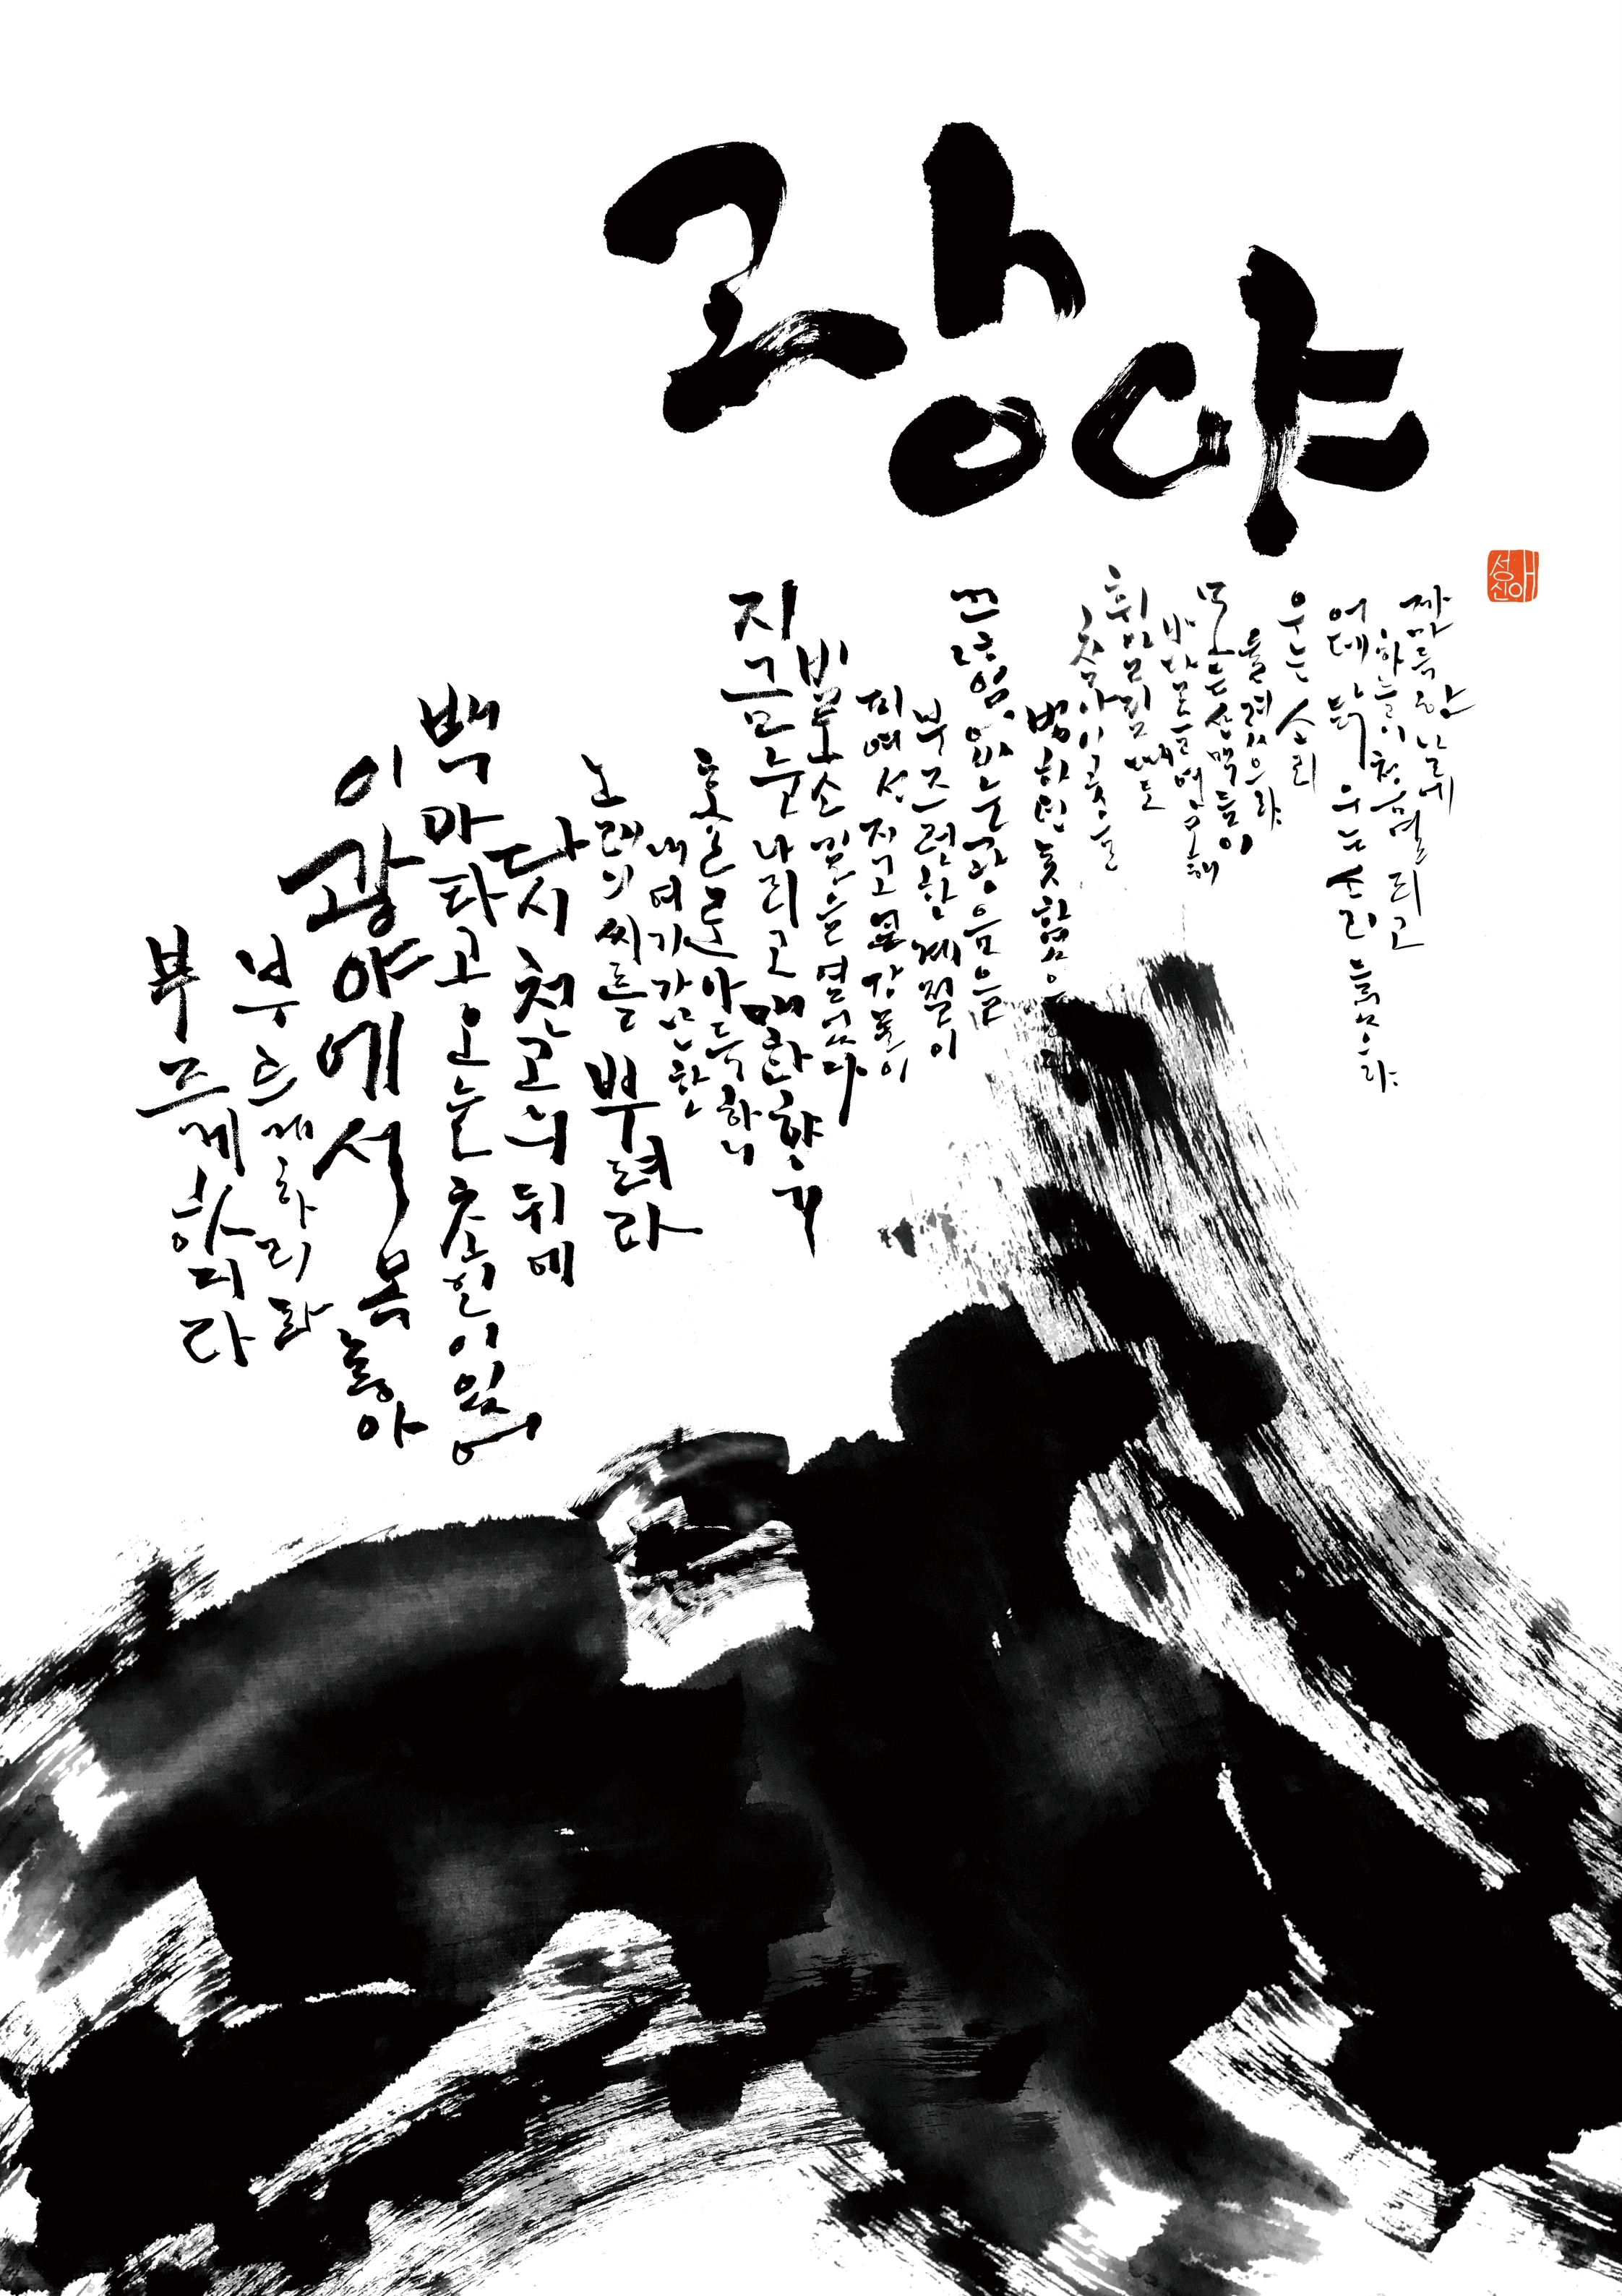 광야
까마득한 날에
하늘이 처음 열리고
어데 닭 우는 소리 들렸으랴
우는 소리
들렸으랴
모든 산맥들이
바다를 연모해
휘달릴 때도
차마 이곳을
범하던 못함은
끈임없는 광음을
부즈런한 계절이
피여서 지고 큰 강물이
비로소 길을 열었다
지금 눈 나리고 매화향기
홀로 아득하니
내 여기 가난한
노래의 씨를 뿌려라
다시 천고의 뒤에
백마 타고 오는 초인이 있어
이 광야에서 목놓아
부르게 하리라
부르게 하리라
성신애